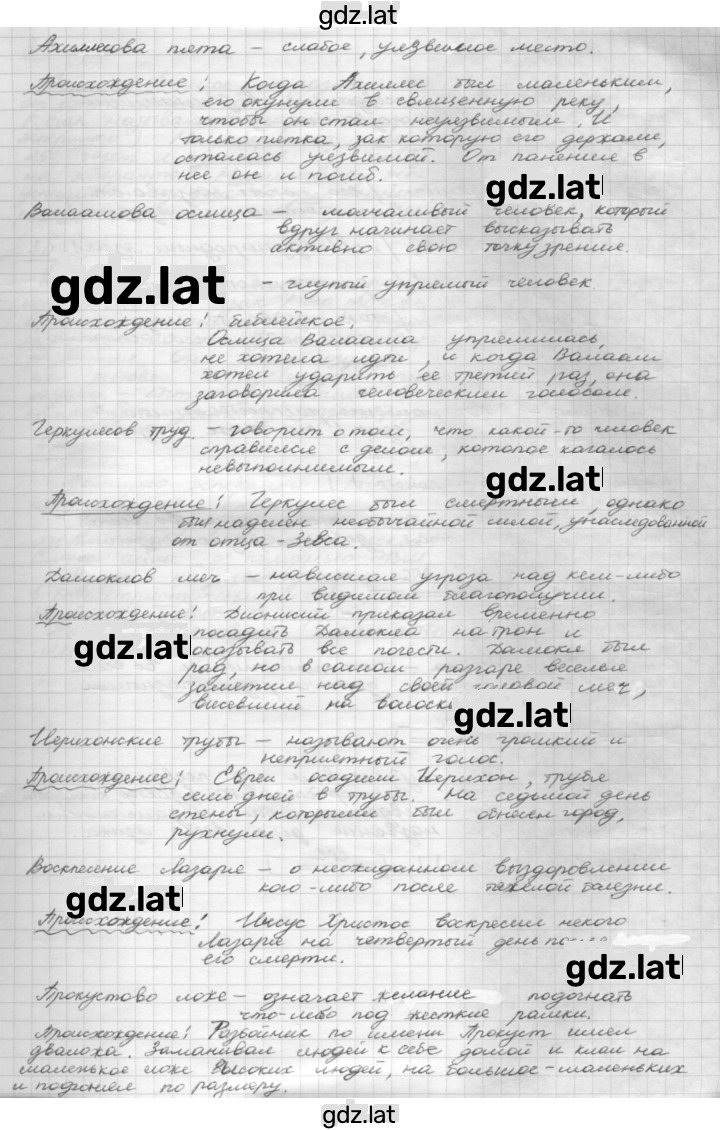 gdz.lat
Ахиллесова пята – слабое, уязвимое место.
Происхождение: Когда Ахиллес был маленьким,
его окунули в священную реку,
чтобы он стал неуязвимым. И
только пятка, за которую его держали,
осталась уязвимой. От ранения в
нее он и погиб.
gdz.lat
Валаамова ослица – молчаливый человек, который
вдруг начинает высказывать
активно свою точку зрения.
gdz.lat – глупый упрямый человек.
Происхождение: библейское.
Ослица Валаама упрямилась,
не хотела идти, и когда Валаам
хотел ударить ее третий раз, она
заговорила человеческим голосом.
Геркулесов труд – говорит о том, что какой-то человек
справился с делом, которое казалось
невыполнимым.
gdz.lat
Происхождение: Геркулес был смертным, однако
был наделен необычайной силой, унаследованной
от отца – Зевса.
Дамоклов меч – нависшая угроза над кем-либо
при видимом благополучии.
Происхождение: Дионисий приказал временно
посадить Дамокла на трон и
gdz.lat оказывать все почести. Дамокл был
рад, но в самом разгаре веселья
заметил над своей головой меч,
висевший на волоске
gdz.lat
Иерихонские трубы – называют очень громкий и
неприятный голос.
Происхождение: Евреи осадили Иерихон, трубя
семь дней в трубы. На седьмой день
стены, которыми был обнесен город,
рухнули.
Воскресение Лазаря – о неожиданном выздоровлении
кого-либо после тяжелой болезни.
gdz.lat
Происхождение: Иисус Христос воскресил некого
Лазаря на четвертый день после
его смерти.
gdz.lat
Прокустово ложе – означает желание подогнать
что-либо под жесткие рамки.
Происхождение: Разбойник по имени Прокуст имел
два ложа. Заманивал людей к себе домой и клал на
маленькое ложе высоких людей, на большое – маленьких
и подгонял по размеру.
gdz.lat